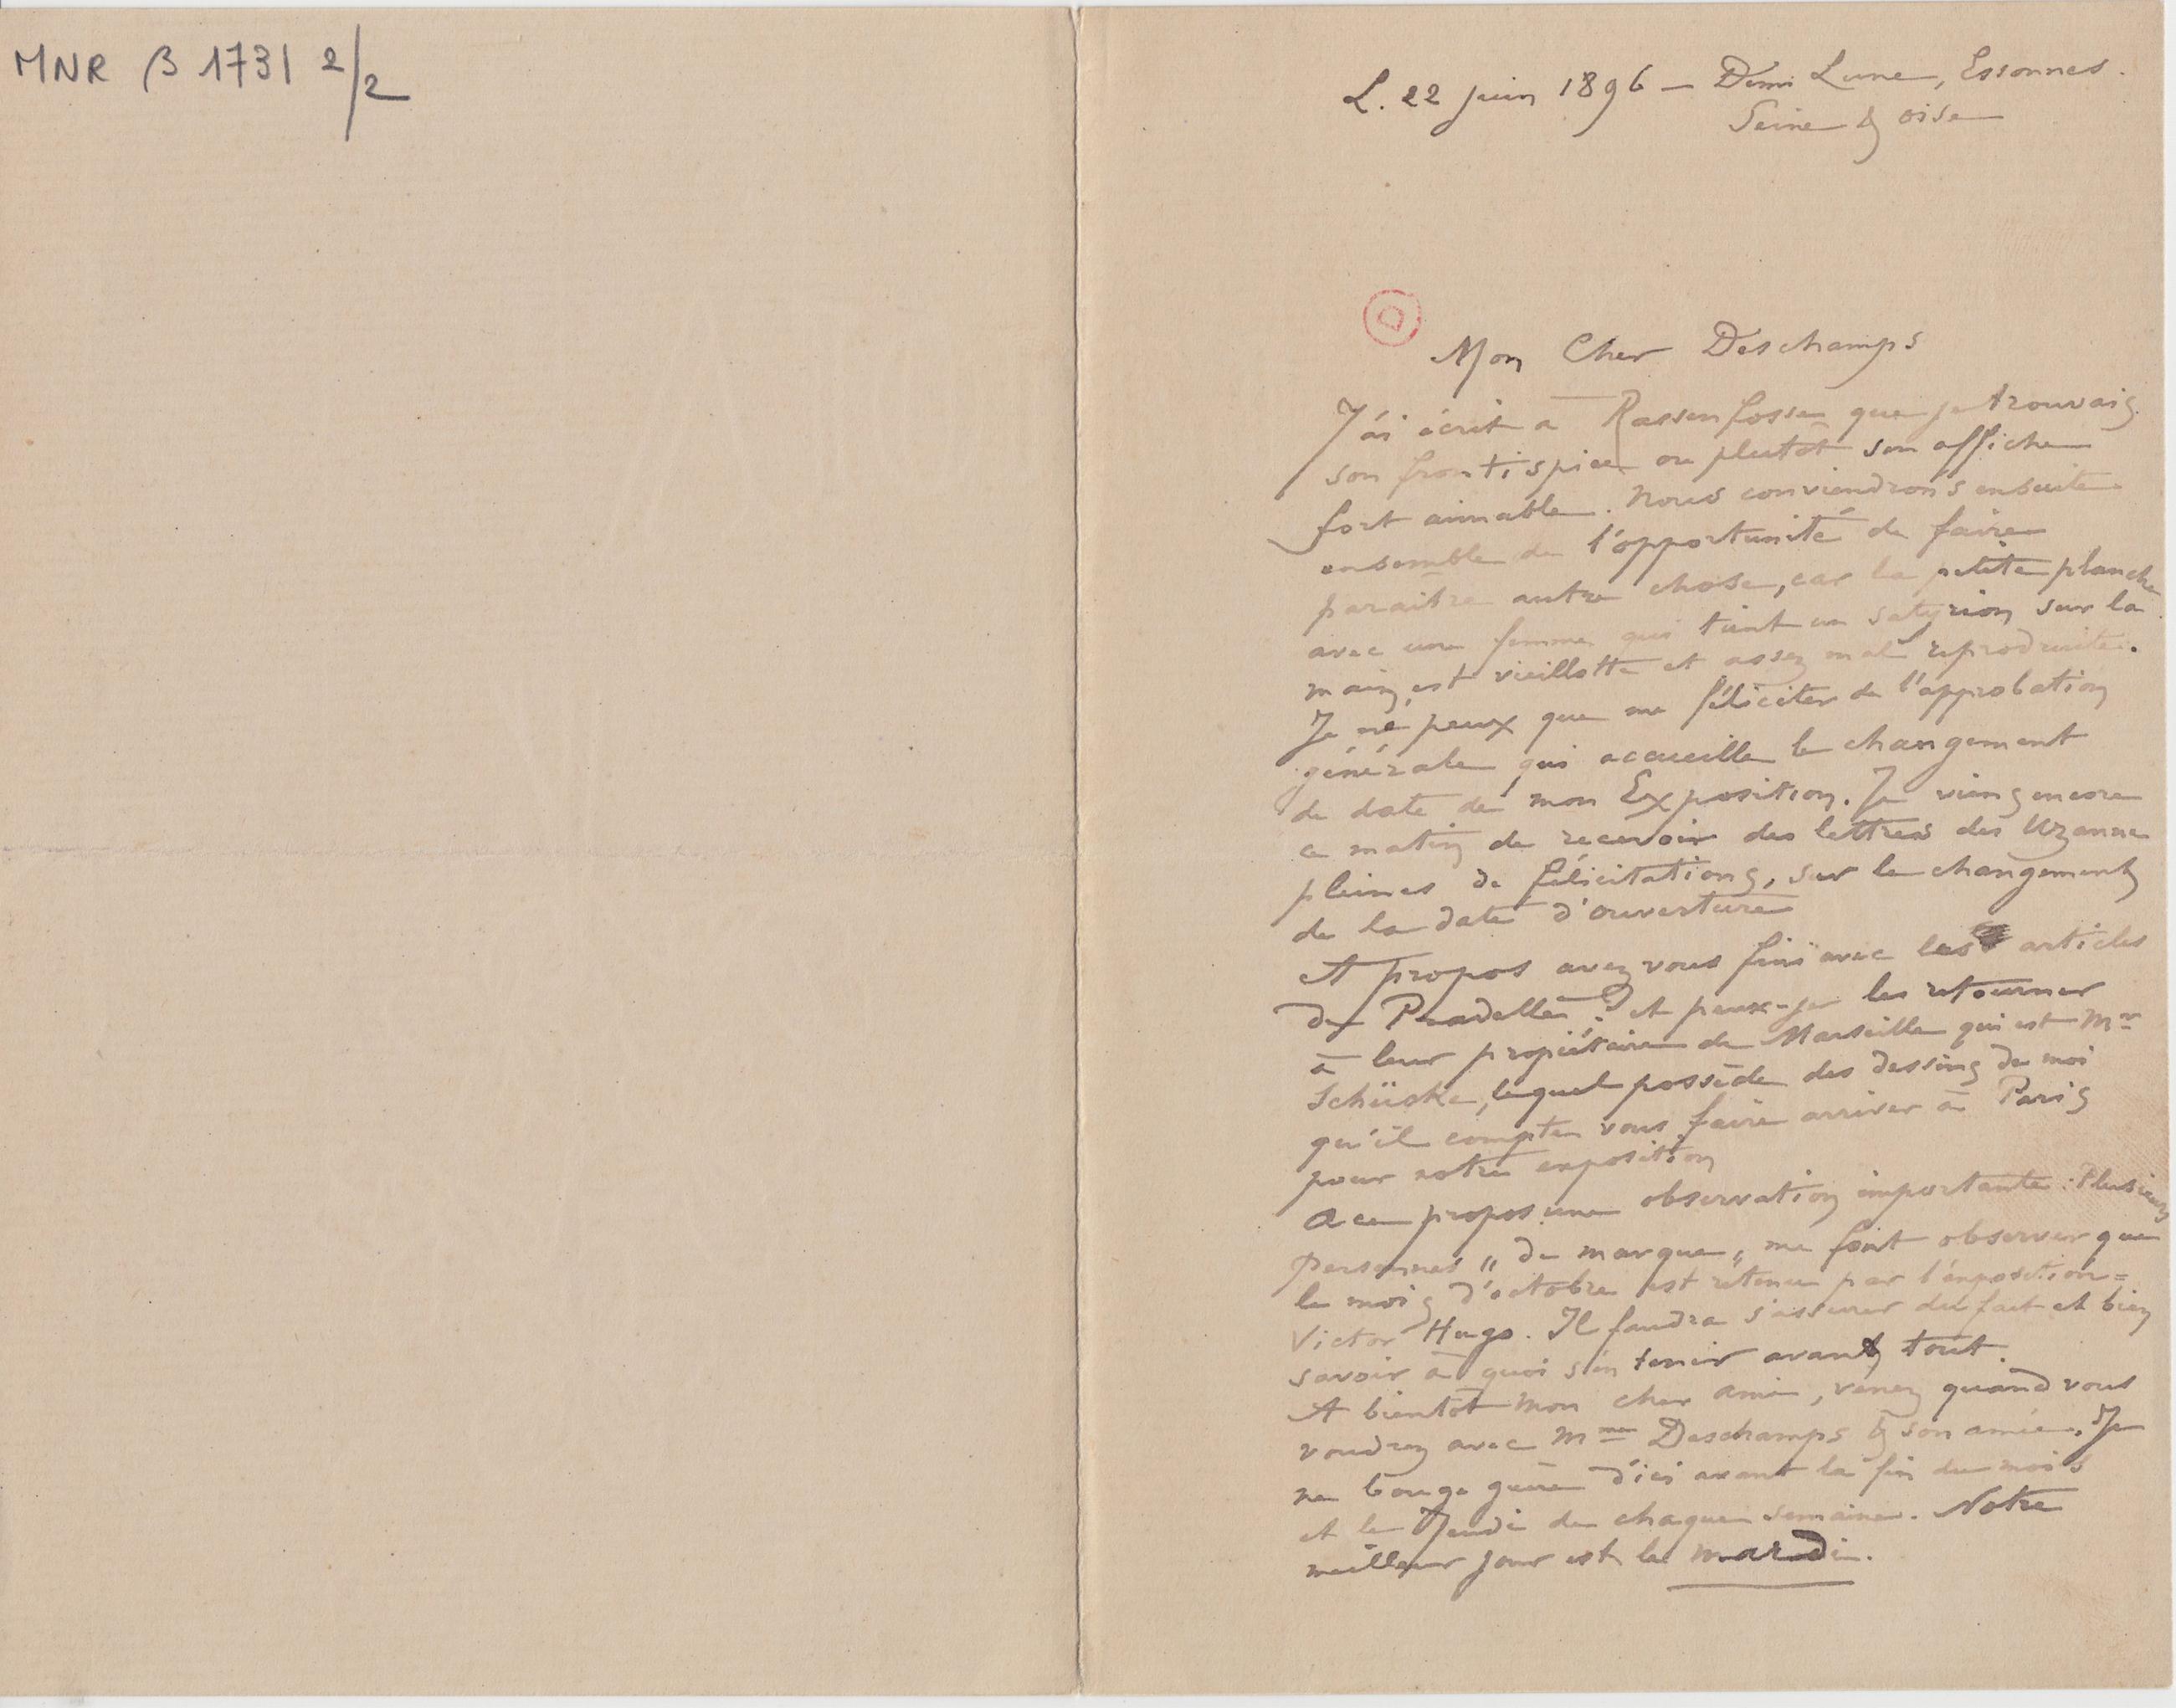 MNR β 1731 2/2
L. 22 juin 1896 — Demi Lune, Essonnes.
Seine & oise
D
Mon Cher Deschamps
J'ai écrit à Rassenfosse que je trouvais
son frontispice ou plutôt son affiche
fort aimable. Nous conviendrons ensuite
ensemble de l'opportunité de faire
paraitre autre chose, car la petite planche
avec une femme qui tient un satyrion sur la
main, est vieillotte et assez mal reproduite.
Je ne peux que me féliciter de l'approbation
générale qui accueille le changement
de date de mon Exposition. Je viens encore
ce matin de recevoir des lettres des Uzanne
pleines de félicitations, sur le changement
de la date d'ouverture
A propos avez vous fini avec les articles
de Pradelle? et peux-je les retourner
à leur propiétaire de Marseille qui est Mr
Schüske, lequel possède des dessins de moi
qu'il compte vous faire arriver à Paris
pour notre exposition
A ce propos une observation importante: Plusieurs
personnes "de marque" me font observer que
le mois d'octobre est retenu par l'exposition=
Victor Hugo. Il faudra s'assurer du fait et bien
savoir à quoi s'en tenir avant tout.
A bientôt mon cher ami, venez quand vous
voudrez avec Mme Deschamps & son amie. Je
ne bouge guère d'ici avant la fin du mois
et le Jeudi de chaque semaine. Notre
meilleur jour est le mardi.